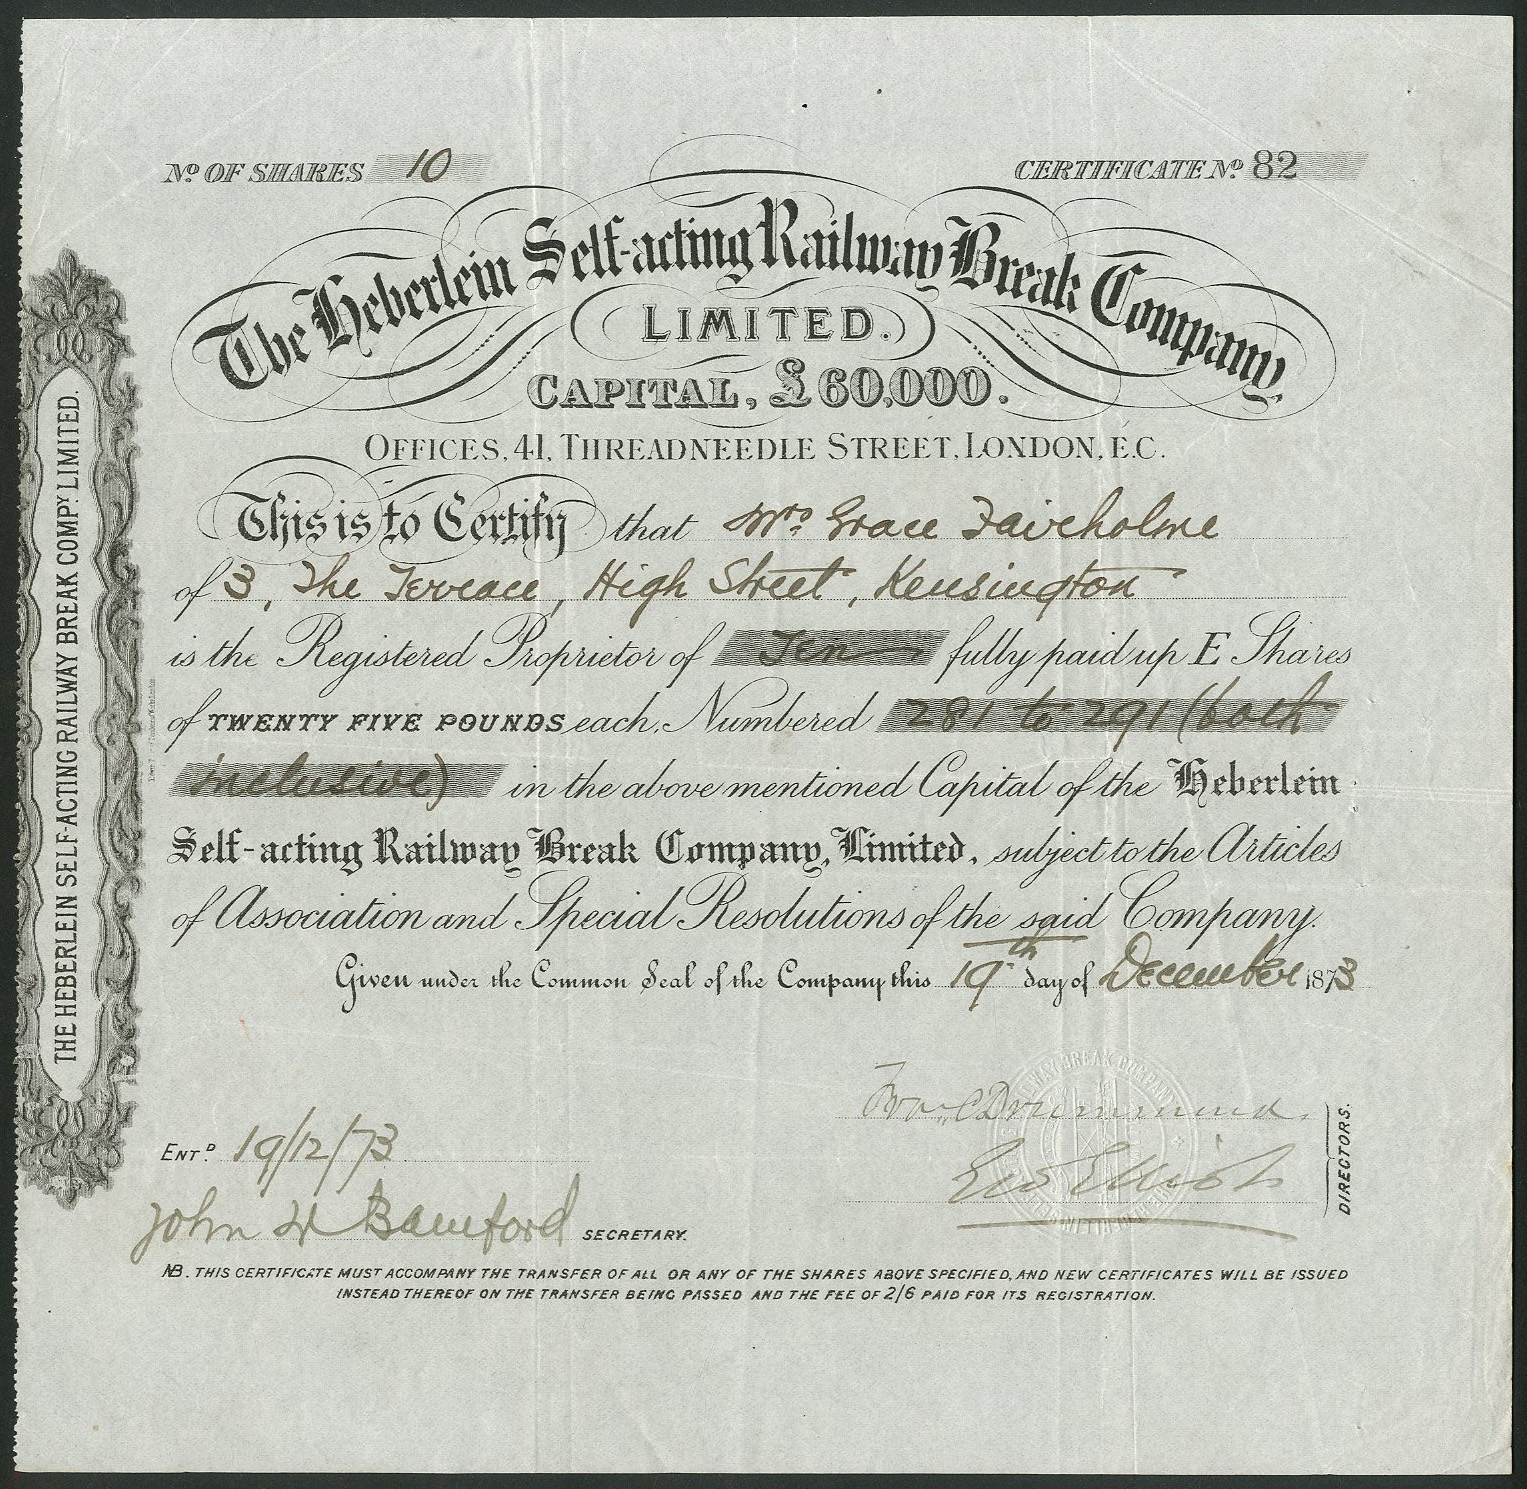 No OF SHARES 10
CERTIFICATE No 82
The Heberlein Self-acting Railway Break Company
LIMITED.
CAPITAL, £60,000.
OFFICES, 41, THREADNEEDLE STREET, LONDON, E.C.
This is to Certify that Mrs Grace Fairholme
of 3, The Terrace, High Street, Kensington
is the Registered Proprietor of Ten fully paid up E Shares
of TWENTY FIVE POUNDS each, Numbered 281 to 291 (both
inclusive) in the above mentioned Capital of the Heberlein
Self-acting Railway Break Company, Limited, subject to the Articles
of Association and Special Resolutions of the said Company.
Given under the Common Seal of the Company this 19th day of December 1873
Wm C Drummond.
Geo Elliot
DIRECTORS.
ENTD. 19/12/73
John W Bamford SECRETARY.
NB. THIS CERTIFICATE MUST ACCOMPANY THE TRANSFER OF ALL OR ANY OF THE SHARES ABOVE SPECIFIED, AND NEW CERTIFICATES WILL BE ISSUED
INSTEAD THEREOF ON THE TRANSFER BEING PASSED AND THE FEE OF 2/6 PAID FOR ITS REGISTRATION.
THE HEBERLEIN SELF-ACTING RAILWAY BREAK COMPY. LIMITED.